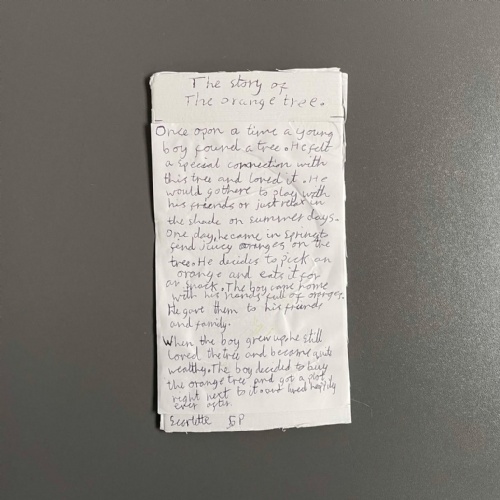 The story of
The orange tree.
Once opon a time a young
boy found a tree. He felt
a special connection with
this tree and loved it. He
would go there to play with
his friends or just relax in
the shade on summer days.
One day, he came in spring to
find juicy oranges on the
tree. He decides to pick an
orange and eats it for
an snack. The boy came home
with his hands full of oranges.
He gave them to his friends
and family.
When the boy grew up, he still
loved the tree and became quite
wealthy. The boy decided to buy
the orange tree and got a plot
right next to it and lived happily
ever after.
Scarlette